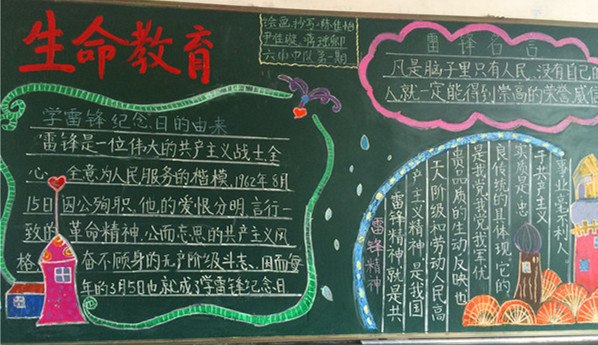 生命教育
绘画抄写:
第一期
学雷锋纪念日的由来
雷锋是一位伟大的共产主义战士全
心全意为人民服务的楷模,1962年8月
15日因公殉职,他的爱恨分明,言行一
致的革命精神,公而忘思的共产主义风
格 奋不顾身的无产阶级斗志,因而每
年的3月5也就成了学雷锋纪念日
雷锋名言
凡是脑子里只有人民、没有自己的
人,就一定能得到崇高的荣誉威信
雷锋精神
雷锋精神就是共
产主义精神,是我国
阶级和劳动人民高
贵品质的生动反映也
是我党我军优
良传统的具体现,它的
实质是忠
于共产主义
事业毫不利人